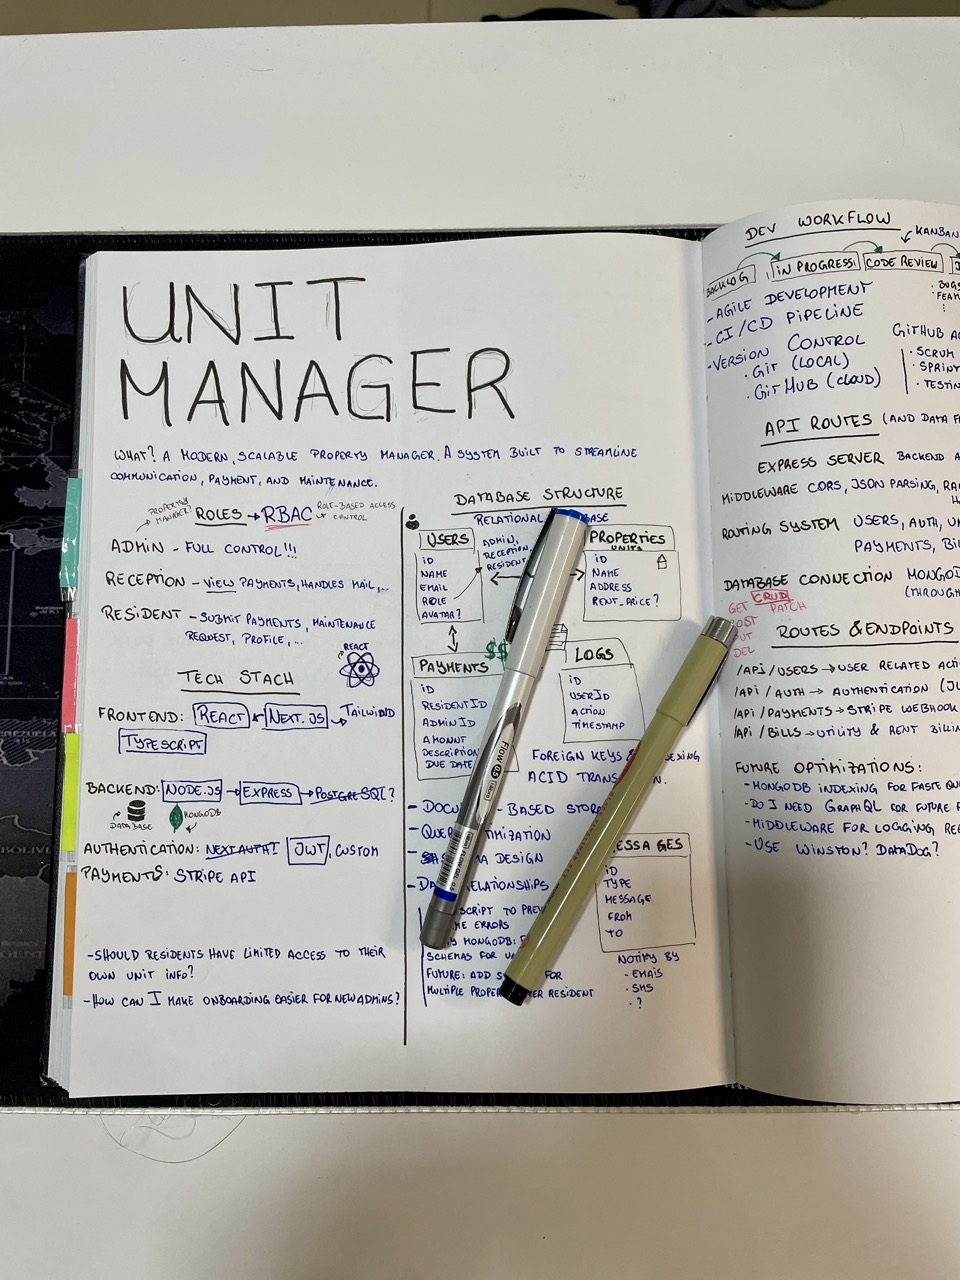 UNIT
MANAGER
WHAT? A MODERN, SCALABLE PROPERTY MANAGER. A SYSTEM BUILT TO STREAMLINE
COMMUNICATION, PAYMENT, AND MAINTENANCE.
PROPERTY
MANAGER?
ROLES → RBAC
ROLE-BASED ACCESS
CONTROL
ADMIN - FULL CONTROL!!!
RECEPTION - VIEW PAYMENTS, HANDLES MAIL,...
RESIDENT - SUBMIT PAYMENTS, MAINTENANCE
REQUEST, PROFILE,...
REACT
TECH STACH
FRONTEND: REACT NEXT.JS → TAILWIND
TYPESCRIPT
BACKEND: NODE.JS → EXPRESS → POSTGRESQL?
DATABASE
MONGODB
AUTHENTICATION: NEXTAUTH JWT, CUSTOM
PAYMENTS: STRIPE API
- SHOULD RESIDENTS HAVE LIMITED ACCESS TO THEIR
OWN UNIT INFO?
- HOW CAN I MAKE ONBOARDING EASIER FOR NEW ADMINS?
DATABASE STRUCTURE
RELATIONAL BASE
USERS
ID
NAME
EMAIL
ROLE
AVATAR?
ADMIN,
RECEPTION,
RESIDENT
PROPERTIES
UNITS
ID
NAME
ADDRESS
RENT_PRICE?
$$
PAYMENTS
ID
RESIDENTID
ADMINID
AMOUNT
DESCRIPTION
DUE DATE
LOGS
ID
USERID
ACTION
TIMESTAMP
FOREIGN KEYS & EXING
ACID TRANS N.
- DOCU - BASED STORA
- QUE TIMIZATION
A DESIGN
- DA ELATIONSHIPS
SCRIPT TO PREV
ME ERRORS
MONGODB:
SCHEMAS FOR
FUTURE: ADD S FOR
MULTIPLE PROPER ER RESIDENT
ESSAGES
ID
TYPE
MESSAGE
FROM
TO
NOTIFY BY
- EMAILS
- SMS
- ?
DEV WORKFLOW
KANBAN
BACKLOG IN PROGRESS CODE REVIEW
BUGS
FEAT
- AGILE DEVELOPMENT
- CI/CD PIPELINE
- VERSION CONTROL
• GIT (LOCAL)
• GITHUB (CLOUD)
GITHUB AC
• SCRUM
• SPRINT
• TESTIN
API ROUTES (AND DATA F
EXPRESS SERVER BACKEND A
MIDDLEWARE CORS, JSON PARSING, RA
ROUTING SYSTEM USERS, AUTH, UN
PAYMENTS, BIL
DATABASE CONNECTION MONGOD
(THROUGH
CRUD
GET PATCH
POST
PUT
DEL
ROUTES & ENDPOINTS
/API/USERS → USER RELATED ACTI
/API/AUTH → AUTHENTICATION (JW
/API/PAYMENTS → STRIPE WEBHOOK
/API/BILLS → UTILITY & RENT BILLIN
FUTURE OPTIMIZATIONS:
- MONGODB INDEXING FOR FASTE QU
- DO I NEED GRAPHQL FOR FUTURE F
- MIDDLEWARE FOR LOGGING REQ
- USE WINSTON? DATADOG?
Flow